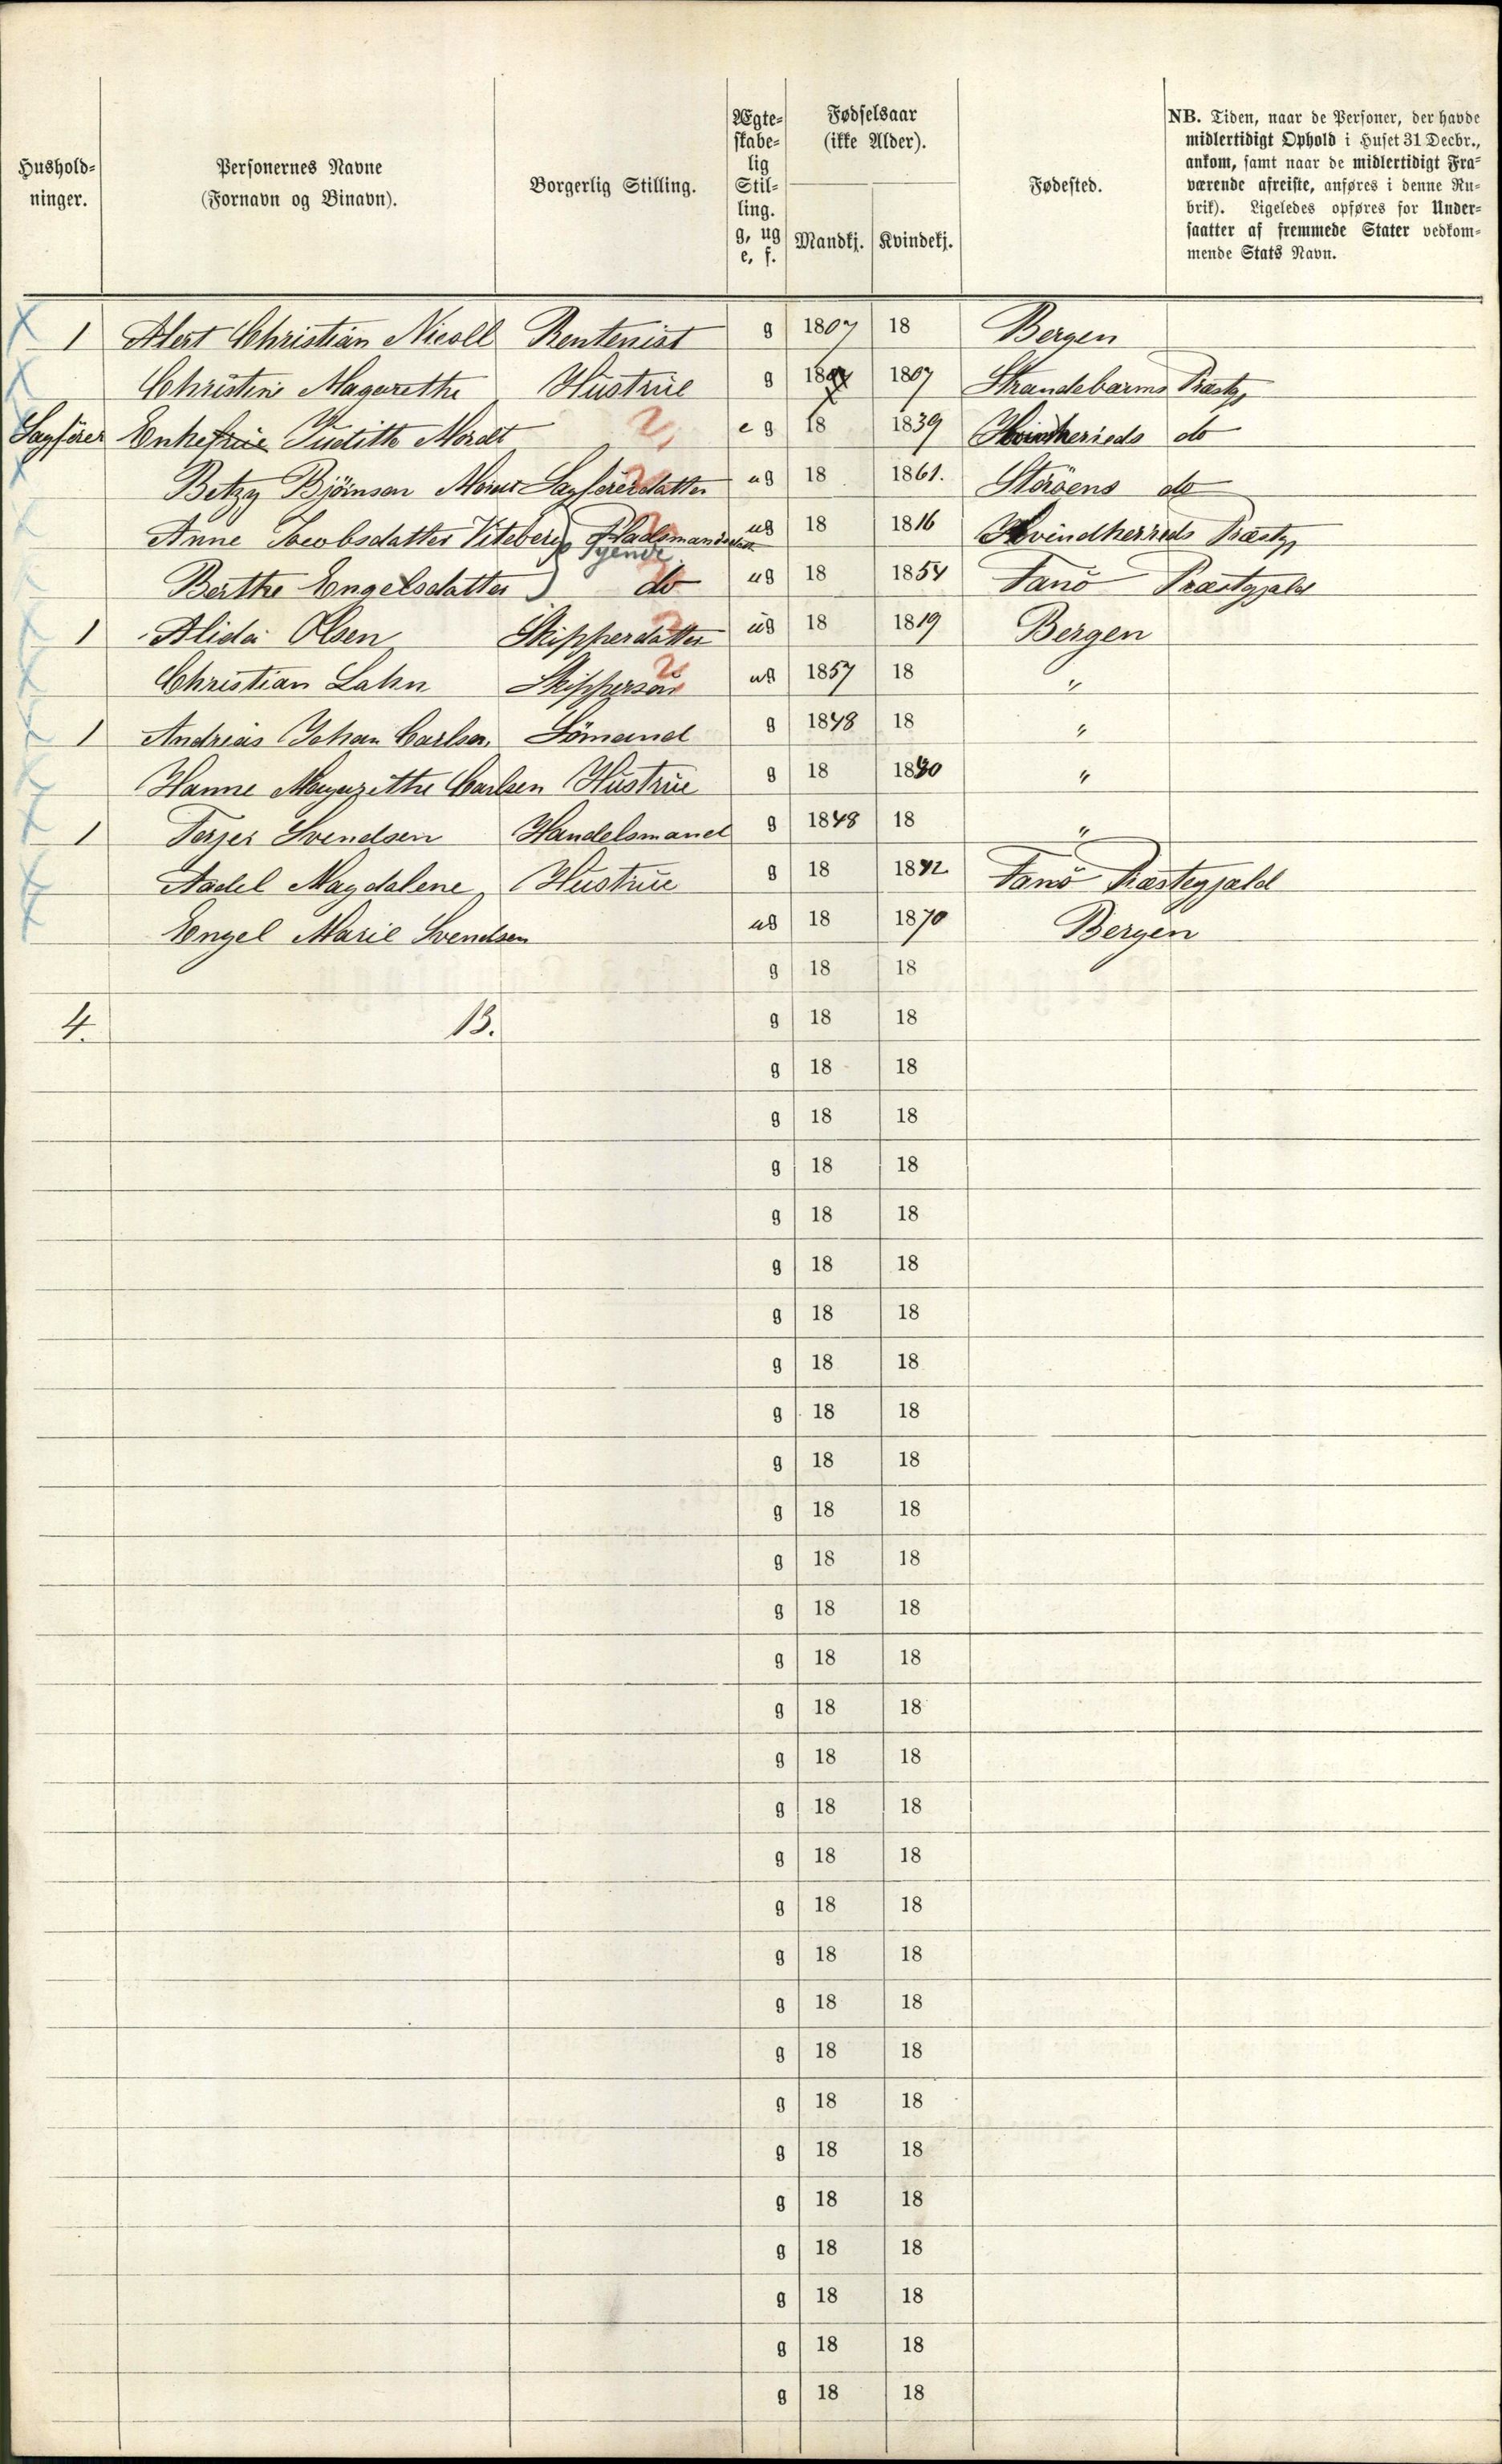 Hushold-
ninger.
Personernes Navne
(Fornavn og Binavn).
Borgerlig Stilling.
Ægte-
skabe-
lig
Stil-
ling.
g, ug
e, f.
Fødselsaar
(ikke Alder).
Mandkj. Kvindekj.
Fødested.
NB. Tiden, naar de Personer, der havde
midlertidigt Ophold i Huset 31 Decbr.,
ankom, samt naar de midlertidigt Fra-
værende afreiste, anføres i denne Ru-
brik). Ligeledes opføres for Under-
saatter af fremmede Stater vedkom-
mende Stats Navn.
1 Alert Christian Nicoll Rentenist g 1807 18 Bergen
Christine Magarethe Hustrue g 18 1807 Strandebarms Præstgj
Sagfører Enkefrue Juditte e g 18 1839 do
Betzy Bjørnsen Sagførerdatter ug 18 1861. Størøens do
Anne Jacobsdatter Viteberg Pladsmandsdatt ug 18 1816 Hvindherreds Præstgj
Tyende
Berthe Engelsdatter do ug 18 1854 Fanö Præstgjald
1 Alida Olsen Skipperdatter ug 18 1819 Bergen
Christian Lahn Skippersøn ug 1857 18 "
1 Andreas Johan Carlsen Sömand g 1848 18 "
Hanne Magrethe Carlsen Hustrue g 18 18 "
1 Terjer Svendsen Handelsmand g 1848 18 "
Aadel Magdalene Hustrue g 18 1842 Fanö Præstegjald
Engel Marie Svendsen ug 18 1870 Bergen
g 18 18
4. 13. g 18 18
g 18 18
g 18 18
g 18 18
g 18 18
g 18 18
g 18 18
g 18 18
g 18 18
g 18 18
g 18 18
g 18 18
g 18 18
g 18 18
g 18 18
g 18 18
g 18 18
g 18 18
g 18 18
g 18 18
g 18 18
g 18 18
g 18 18
g 18 18
g 18 18
g 18 18
g 18 18
g 18 18
g 18 18